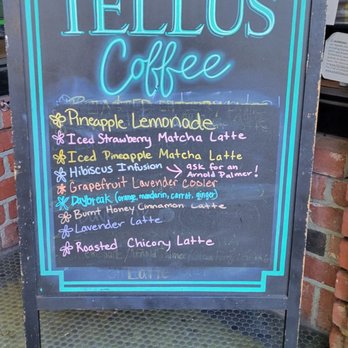 TELLUS
Coffee
Pineapple Lemonade
Iced Strawberry Matcha Latte
Iced Pineapple Matcha Latte
Hibiscus Infusion → ask for an
Arnold Palmer!
Grapefruit Lavender Cooler
Daybreak (orange, mandarin, carrot, ginger)
Burnt Honey Cinnamon Latte
Lavender Latte
Roasted Chicory Latte